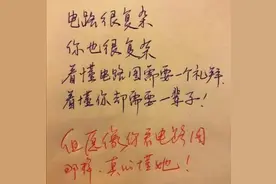 电路很复杂
你也很复杂
看懂电路图需要一个礼拜,
看懂你却需要一辈子!
但愿像你看电路图
那样,真心懂她!